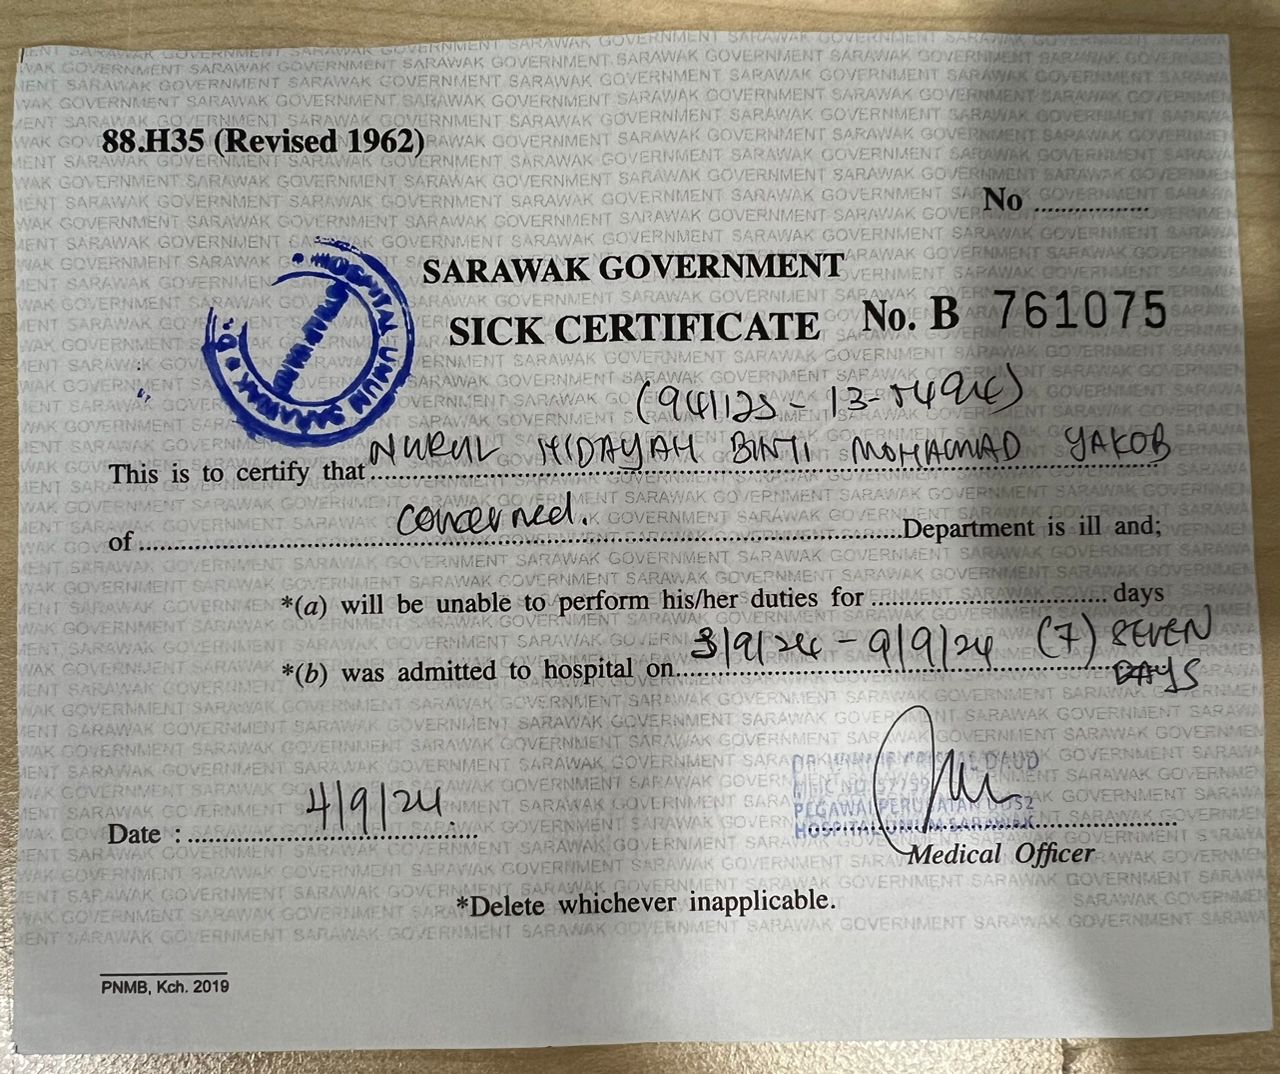 88.H35 (Revised 1962)
No ..................
SARAWAK GOVERNMENT
SICK CERTIFICATE No. B 761075
(941125-13-5494)
This is to certify that NURUL HIDAYAH BINTI MOHAMMAD YAKOB
of concerned. Department is ill and;
*(a) will be unable to perform his/her duties for .................. days
*(b) was admitted to hospital on 3/9/24 - 9/9/24 (7) SEVEN DAYS
HOSPITAL UMUM SARAWAK
DAUD
PEGAWAI PERUBATAN UD52
HOSPITAL UMUM SARAWAK
Date : 4/9/24.
Medical Officer
*Delete whichever inapplicable.
PNMB, Kch. 2019